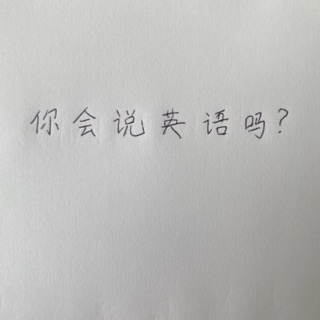 你会说英语吗?